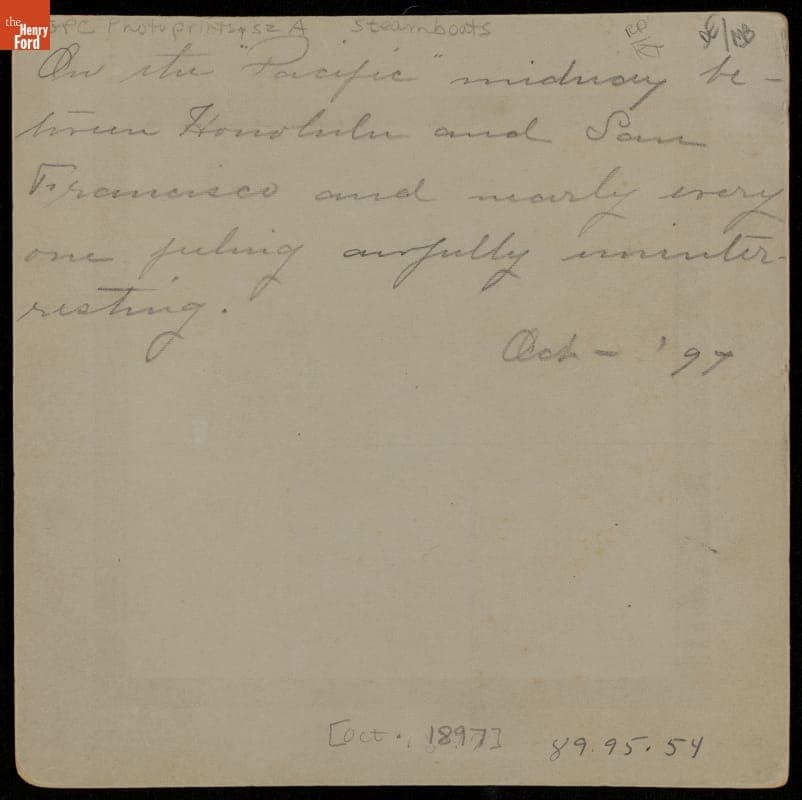 the
Henry
Ford
EPC Photoprints, sz A steamboats
DE/MB
On the "Pacific" midway be-
tween Honolulu and San
Francisco and nearly every
one feeling awfully uninter-
resting.
Oct - '97
[Oct., 1897]
89.95.54